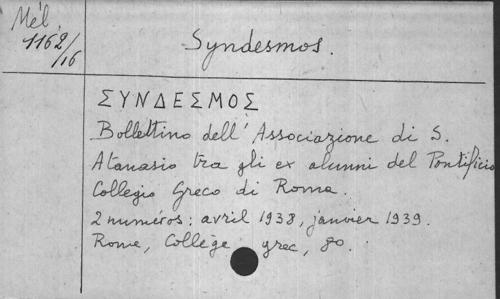 Mél.
1162/16
Syndesmos.
ΣΥΝΔΕΣΜΟΣ
Bollettino dell' Associazione di S.
Atanasio tra gli ex alunni del Pontificio
Collegio Greco di Roma.
2 numéros: avril 1938, janvier 1939.
Rome, Collège grec, 8o.